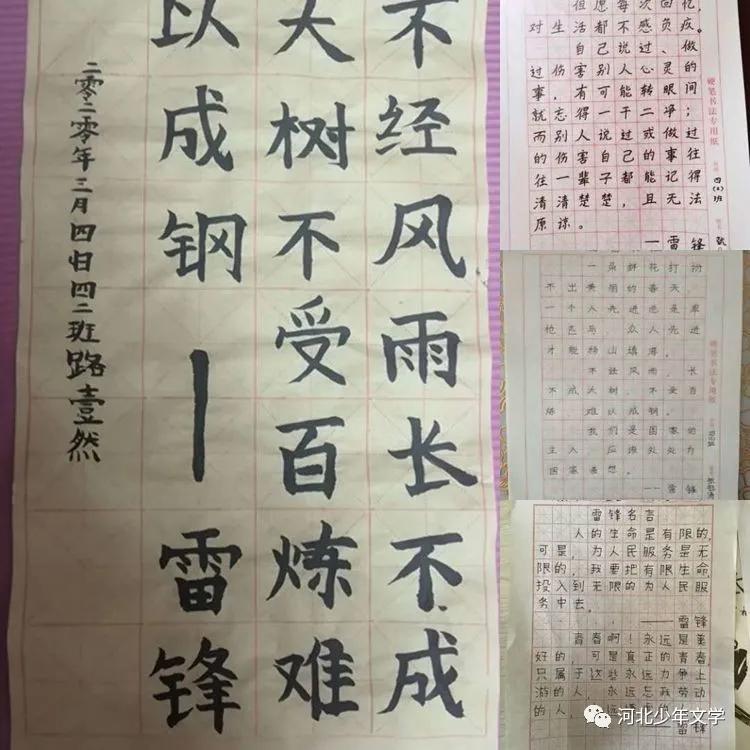 不经风雨长不成
大树不受百炼难
以成钢——雷锋
二零二零年三月四日四二班路壹然
但愿每次回忆,
对生活都不感负疚。
自己说过、做
过伤害别人心灵的
事,有可能转眼间
就忘得一干二净;
而别人说过或做过
的伤害自己的事往
往一辈子都能记得
清清楚楚,且无法
原谅。
——雷锋
硬笔书法专用纸
四(2)班
一朵鲜花打扮
不出美丽的春天,
一个人先进总是单
枪匹马,众人先进
才能移山填海。
不经风雨,长
不成大树,不受百
炼,难以成钢。
我们是国家的
主人,应该处处为
国家着想。
——雷锋
硬笔书法专用纸
雷锋名言
人的生命是有限的,
可是,为人民服务是无
限的,我要把有限生命,
投入到无限的为人民服
务中去。
——雷锋
青春啊!永远是美
好的,可是真正的青春
只属于这些永远力争上
游的人,永远忘我劳动
的人,永远
——雷锋
河北少年文学